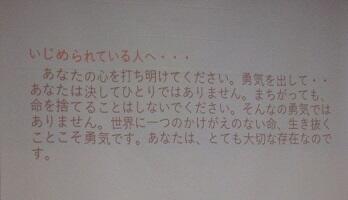 いじめられている人へ・・・
あなたの心を打ち明けてください。勇気を出して・・
あなたは決してひとりではありません。まちがっても、
命を捨てることはしないでください。そんなの勇気では
ありません。世界に一つのかけがえのない命、生き抜く
ことこそ勇気です。あなたは、とても大切な存在なので
す。